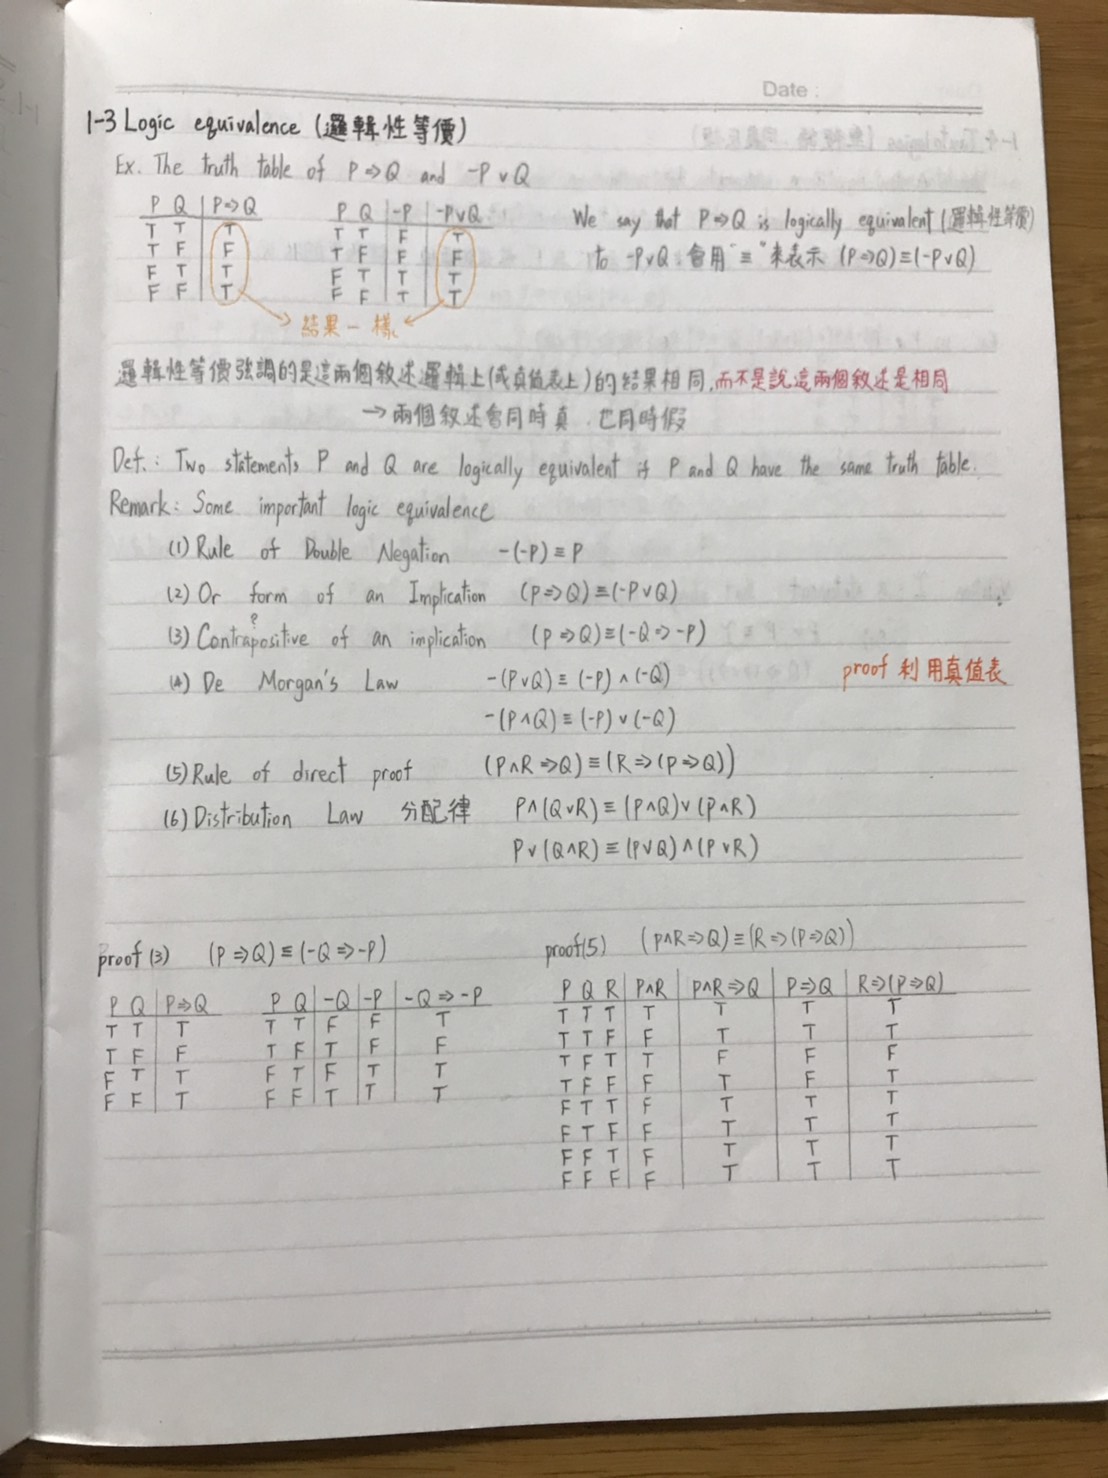 Date :
1-3 Logic equivalence (邏輯性等價)
Ex. The truth table of P⇒Q and -P∨Q
P Q | P⇒Q
T T | T
T F | F
F T | T
F F | T
P Q | -P | -P∨Q
T T | F | T
T F | F | F
F T | T | T
F F | T | T
結果一樣
We say that P⇒Q is logically equivalent (邏輯性等價)
to -P∨Q. 會用"≡"來表示 (P⇒Q)≡(-P∨Q)
邏輯性等價強調的是這兩個敘述邏輯上(或真值表上)的結果相同,而不是說這兩個敘述是相同
→ 兩個敘述會同時真, 也同時假
Def.: Two statements P and Q are logically equivalent if P and Q have the same truth table.
Remark: Some important logic equivalence
(1) Rule of Double Negation -(-P)≡P
(2) Or form of an Implication (P⇒Q)≡(-P∨Q)
(3) Contrapositive of an implication (P⇒Q)≡(-Q⇒-P)
(4) De Morgan's Law -(P∨Q)≡(-P)∧(-Q)
proof 利用真值表
-(P∧Q)≡(-P)∨(-Q)
(5) Rule of direct proof (P∧R⇒Q)≡(R⇒(P⇒Q))
(6) Distribution Law 分配律 P∧(Q∨R)≡(P∧Q)∨(P∧R)
P∨(Q∧R)≡(P∨Q)∧(P∨R)
proof (3) (P⇒Q)≡(-Q⇒-P)
P Q | P⇒Q
T T | T
T F | F
F T | T
F F | T
P Q | -Q | -P | -Q⇒-P
T T | F | F | T
T F | T | F | F
F T | F | T | T
F F | T | T | T
proof(5) (P∧R⇒Q)≡(R⇒(P⇒Q))
P Q R | P∧R | P∧R⇒Q | P⇒Q | R⇒(P⇒Q)
T T T | T | T | T | T
T T F | F | T | T | T
T F T | T | F | F | F
T F F | F | T | F | T
F T T | F | T | T | T
F T F | F | T | T | T
F F T | F | T | T | T
F F F | F | T | T | T